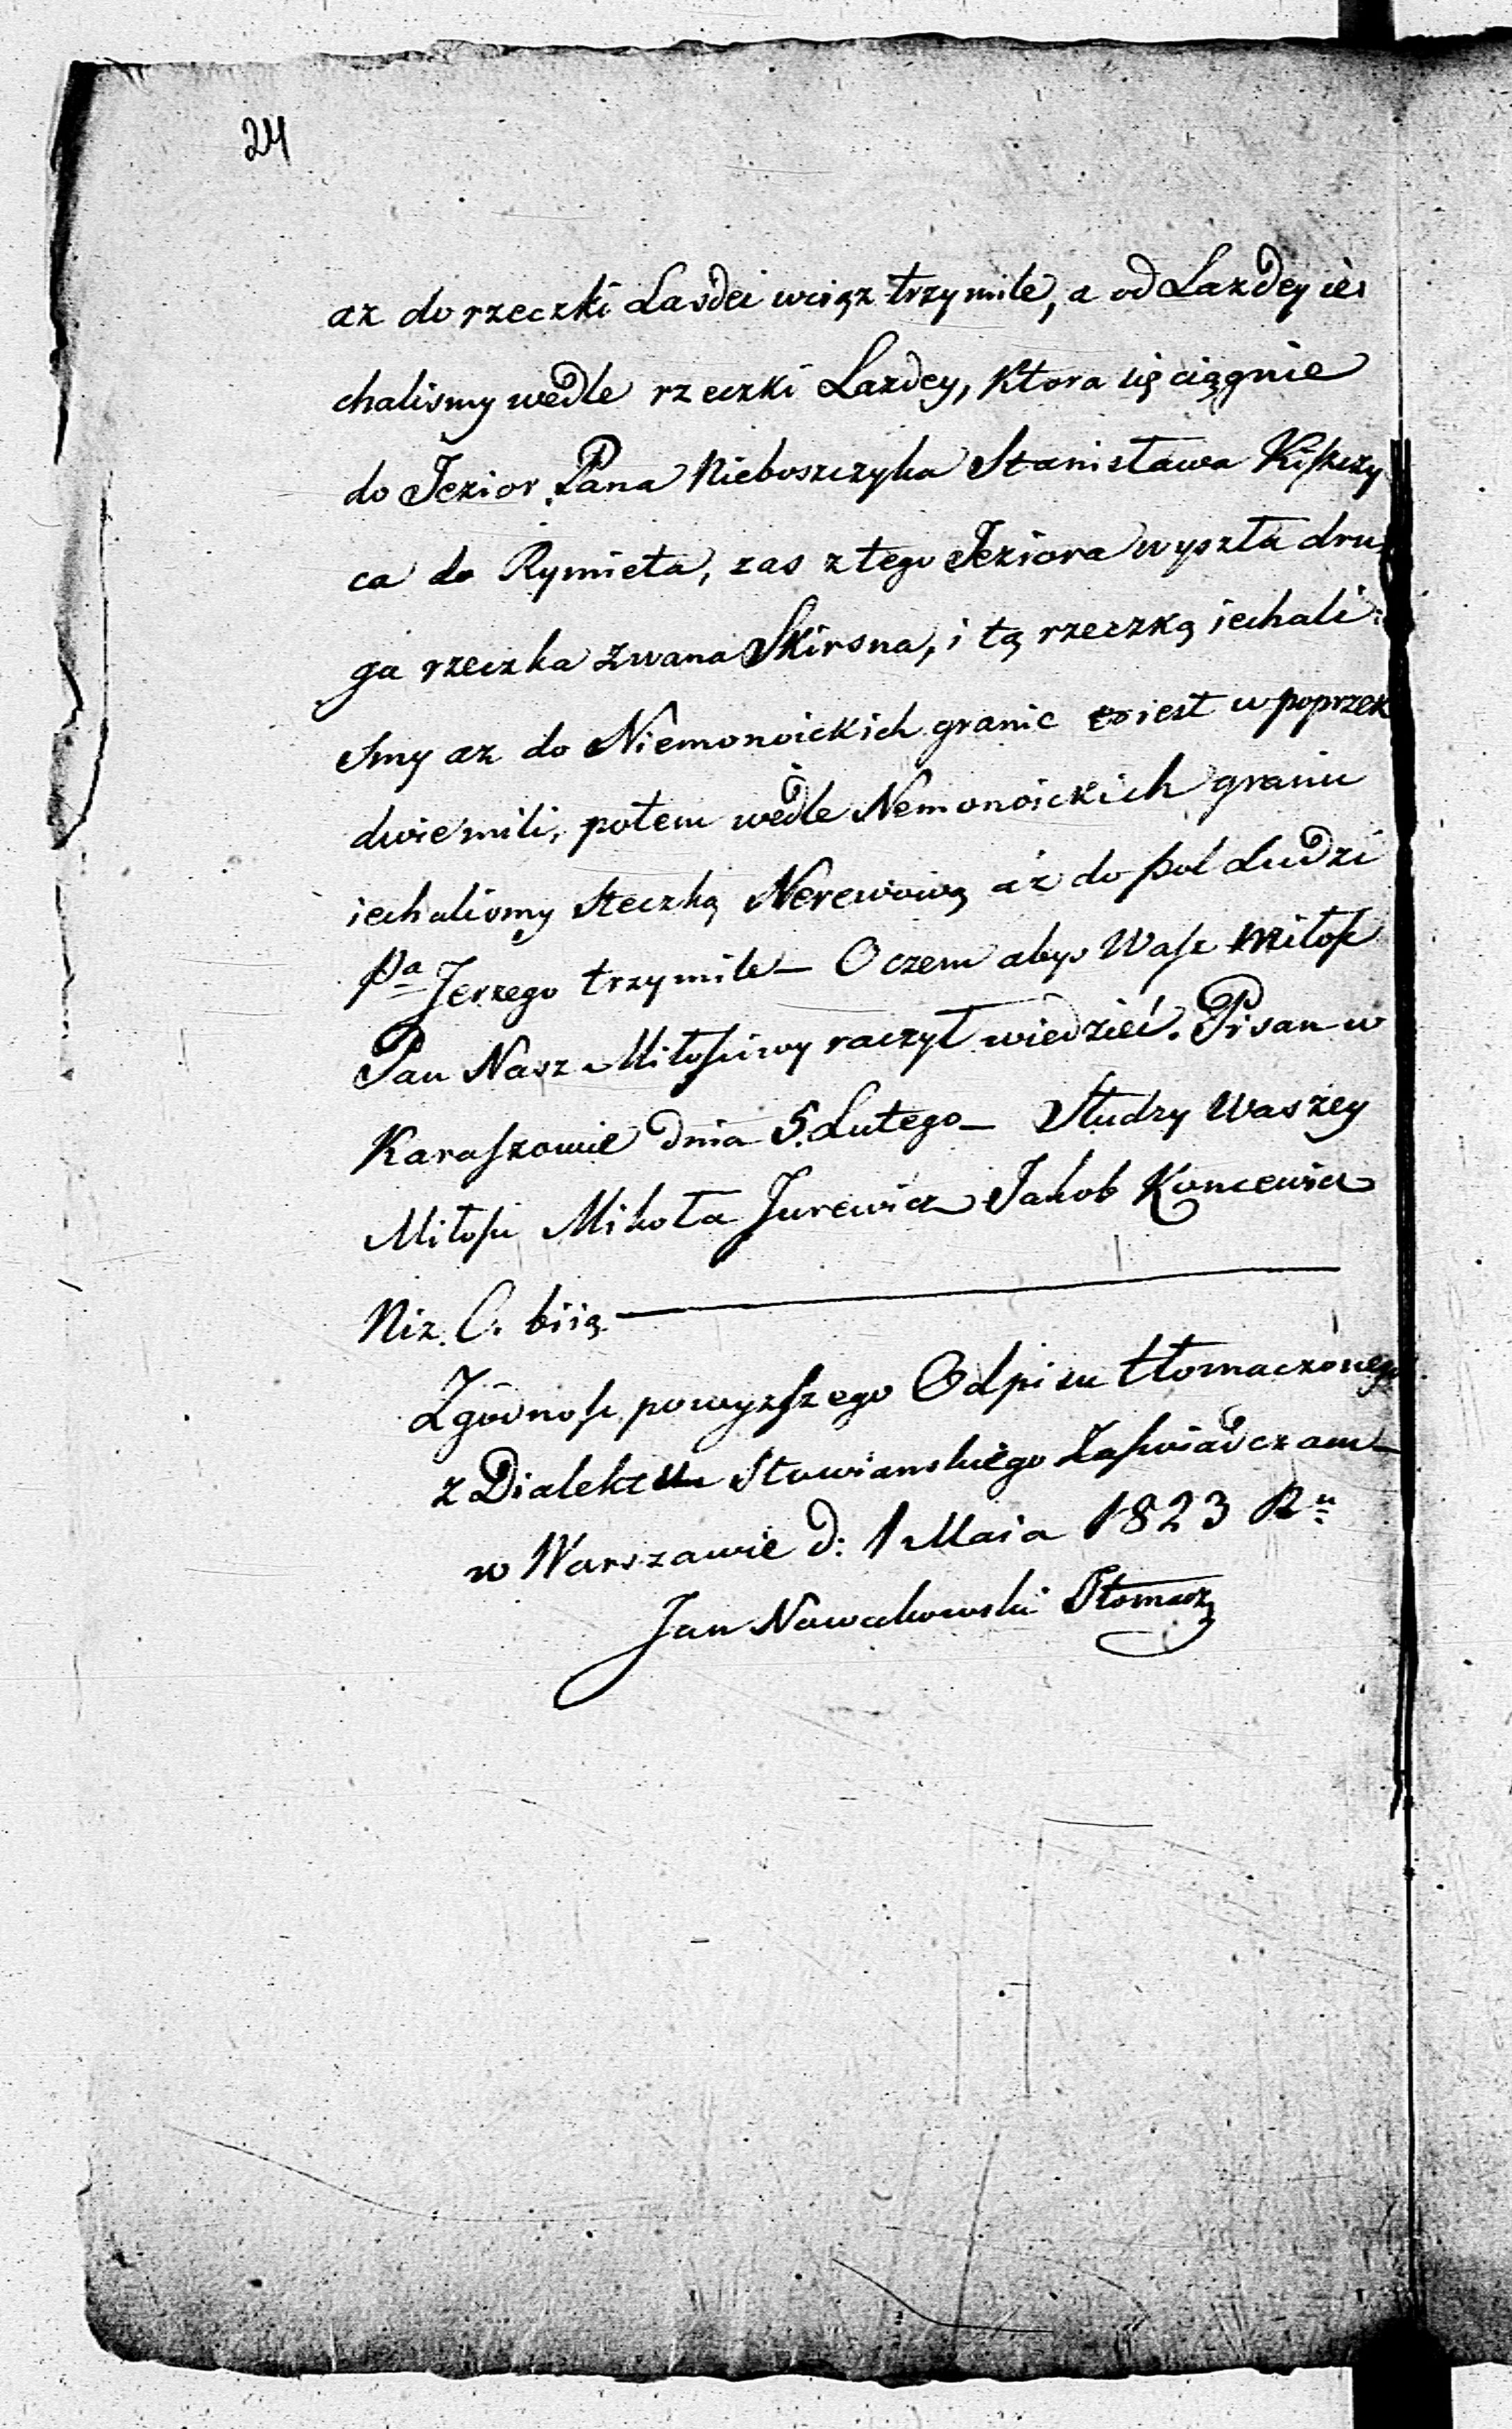 24
az do rzeczki Lasdei wciąz trzy mile, a od Lazdey ie:
chalismy wedle rzeczki Lazdey, Ktora się ciągnie
do Jezior Pana Nieboszczyka Stanisława Kiszczy
ca do Rymieta, zas z tego Jeziora wyszła dru
ga rzeczka zwana Skirsna, i tą rzeczką iechali:
smy az do Niemonoickich granic co iest w poprzek
dwie mili, potem wedle Nemonoickich granic
iechalismy steczką Nerewową aż do pol Ludzi
Pa Jerzego trzy mile — O czem abys Wasc Miłosc
Pan Nasz Miłosciwy raczył wiedzieć. Pisan w
Karaszowie dnia 5. Lutego — Słudzy Waszey
Miłosci Mikoła Jurewicz Jakob Koncewicz
Niz. C. biią —
Zgodnosc powyzszego Odpisu tłomaczonego
z Dialektu Słowianskiego Zaswiadczam —
w Warszawie d: 1 Maia 1823 Ru
Jan Nowakowski Tłomacz